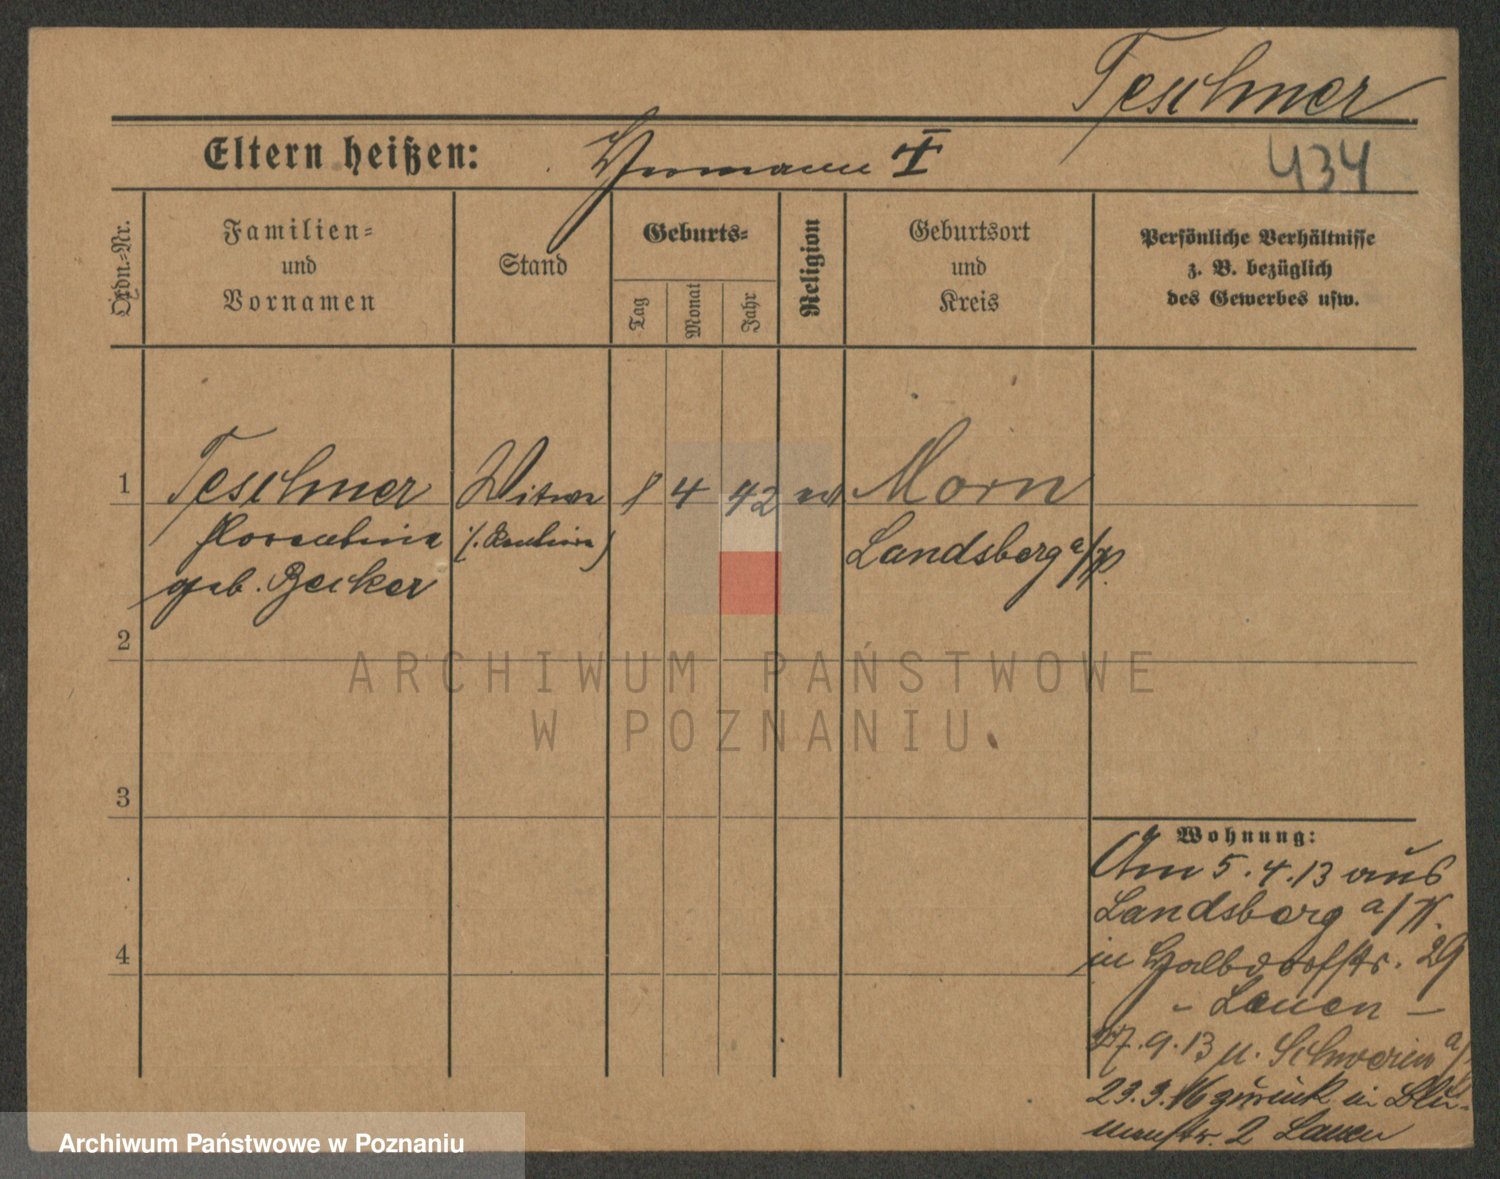 Teschner
Eltern heißen: Hermann †
434
Ordn.-Nr.
Familien-
und
Vornamen
Stand
Geburts-
Tag
Monat
Jahr
Religion
Geburtsort
und
Kreis
Persönliche Verhältnisse
z. B. bezüglich
des Gewerbes usw.
1 Teschner Witwe 8 4 42 ev Morn
Florentine
geb. Becker
Landsberg a/W.
2
3
4
Wohnung:
Am 5.4.13 aus
Landsberg a/W.
in Halbdorfstr. 29
- Lauen -
27.9.13 n. Schwerin a/
23.3.16 zurück in Blu-
menstr. 2 Lauen
ARCHIWUM PAŃSTWOWE
W POZNANIU
Archiwum Państwowe w Poznaniu